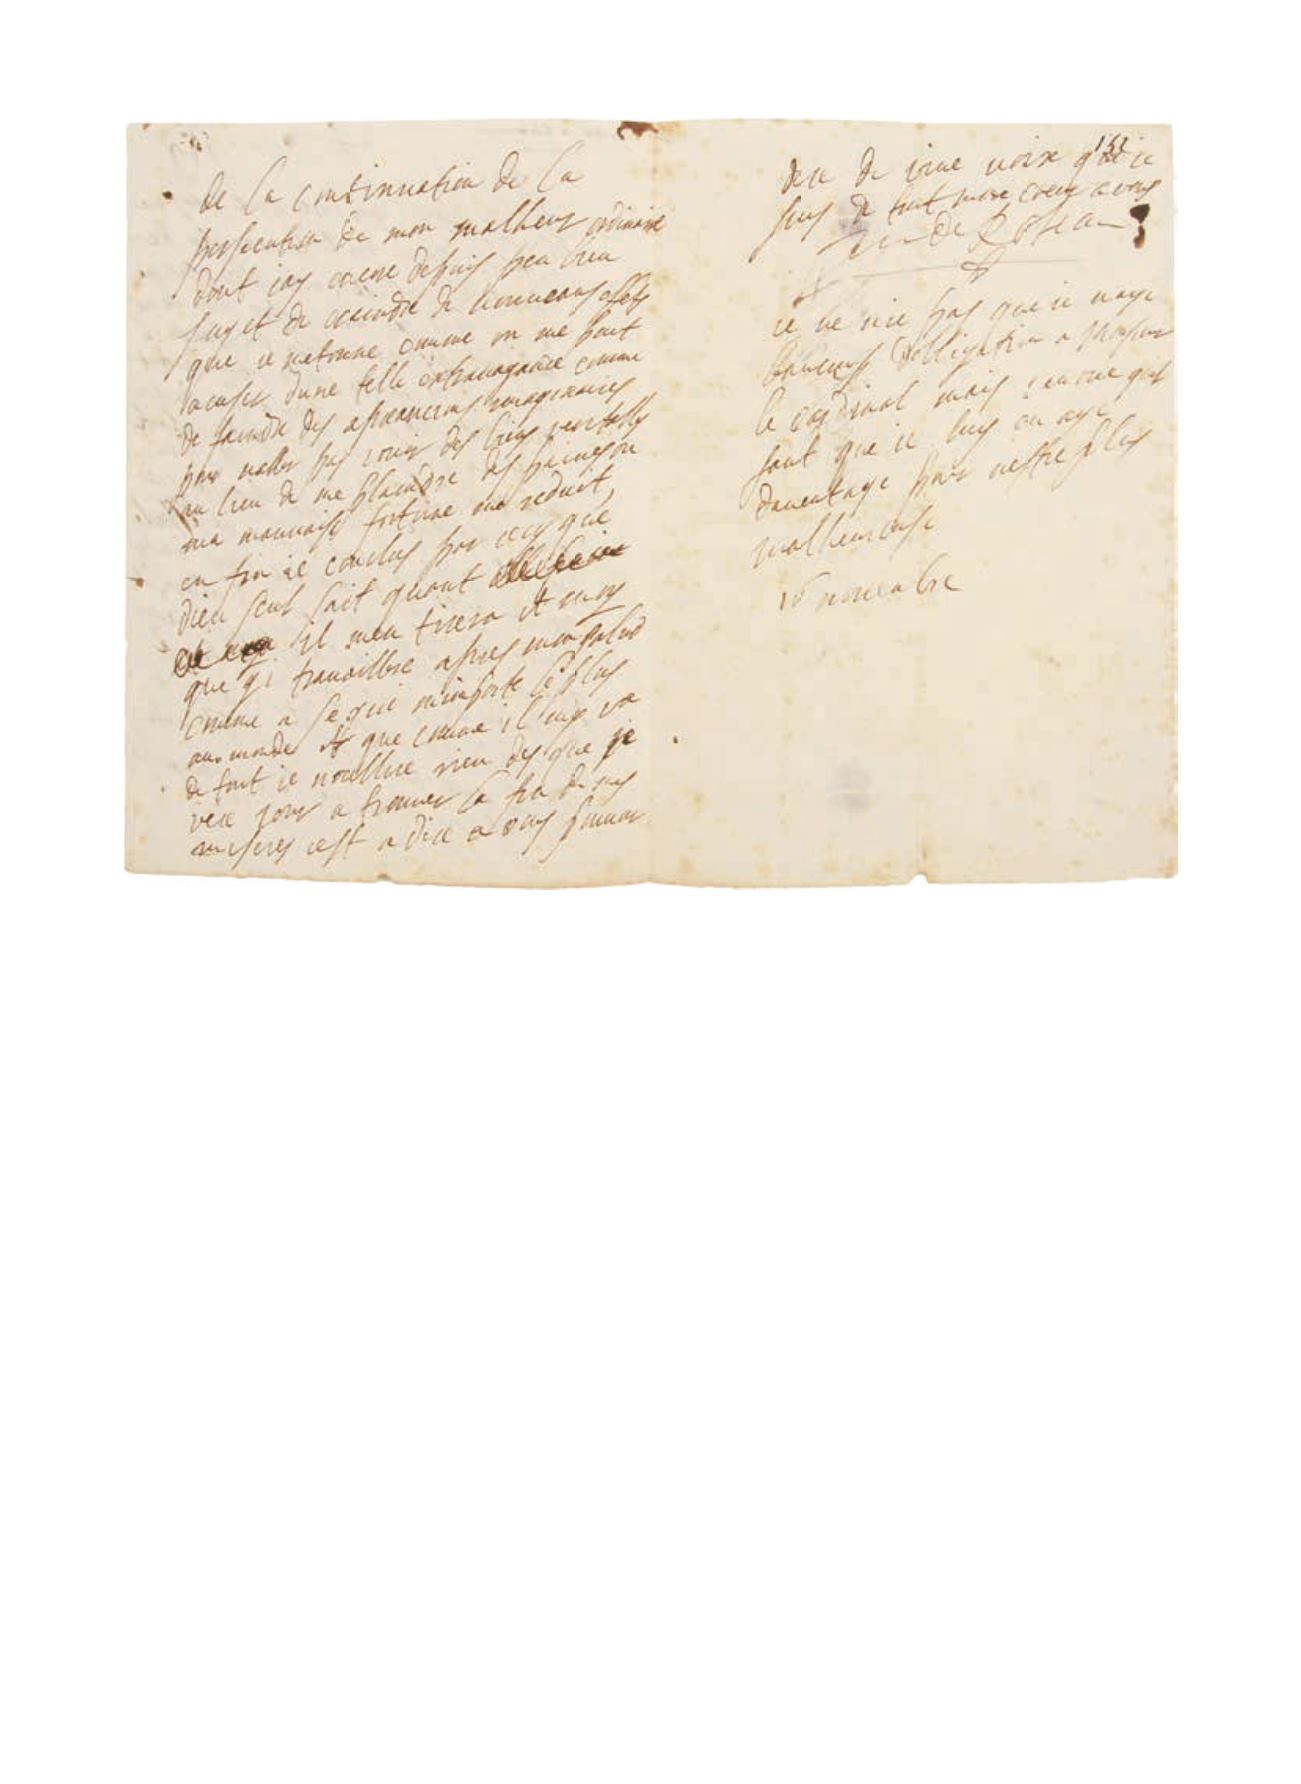 de la continuation de la
persecution de mon malheur ordinaire
dont iay encore depuis peu bien
suget de craindre de nouveaus efets
que ie metonne comme on me peut
acuser dune telle extrauagance comme
de faindre des aprancions imaginaires
pour naller pas iouir des biens veritables
au lieu de me plaindre des peines ou
ma mauuaise fortune me reduit,
en fin ie conclus par cecy que
dieu seul sait quant
il men tirera et moy
que ie trauaillere apres mon salud
comme a se qui mimporte le plus
au monde et que comme il luy va
de tout ie noublire rien des que je
vere iour a trouuer la fin de mes
miseres cest a dire a vous pouuoir
dire de viue voix que ie
suis de tout mon coeur a vous
de
ie ne nie pas que ie naye
baucoup dobligation a monsieur
le cardinal mais iauoue quil
faut que ie luy en aye
dauentage pour nestre plus
malheureuse
16 nouembre